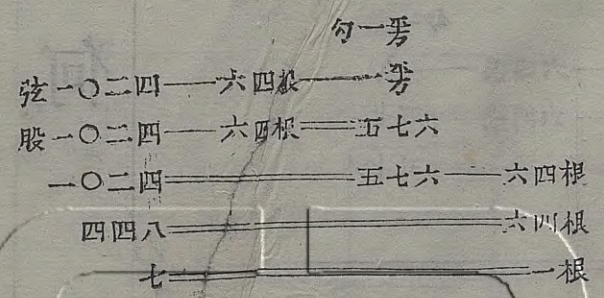 勾一平方
弦一〇二四——六四根——一平方
股一〇二四——六四根══五七六
一〇二四══════五七六——六四根
四四八══════════六四根
七══════════一根